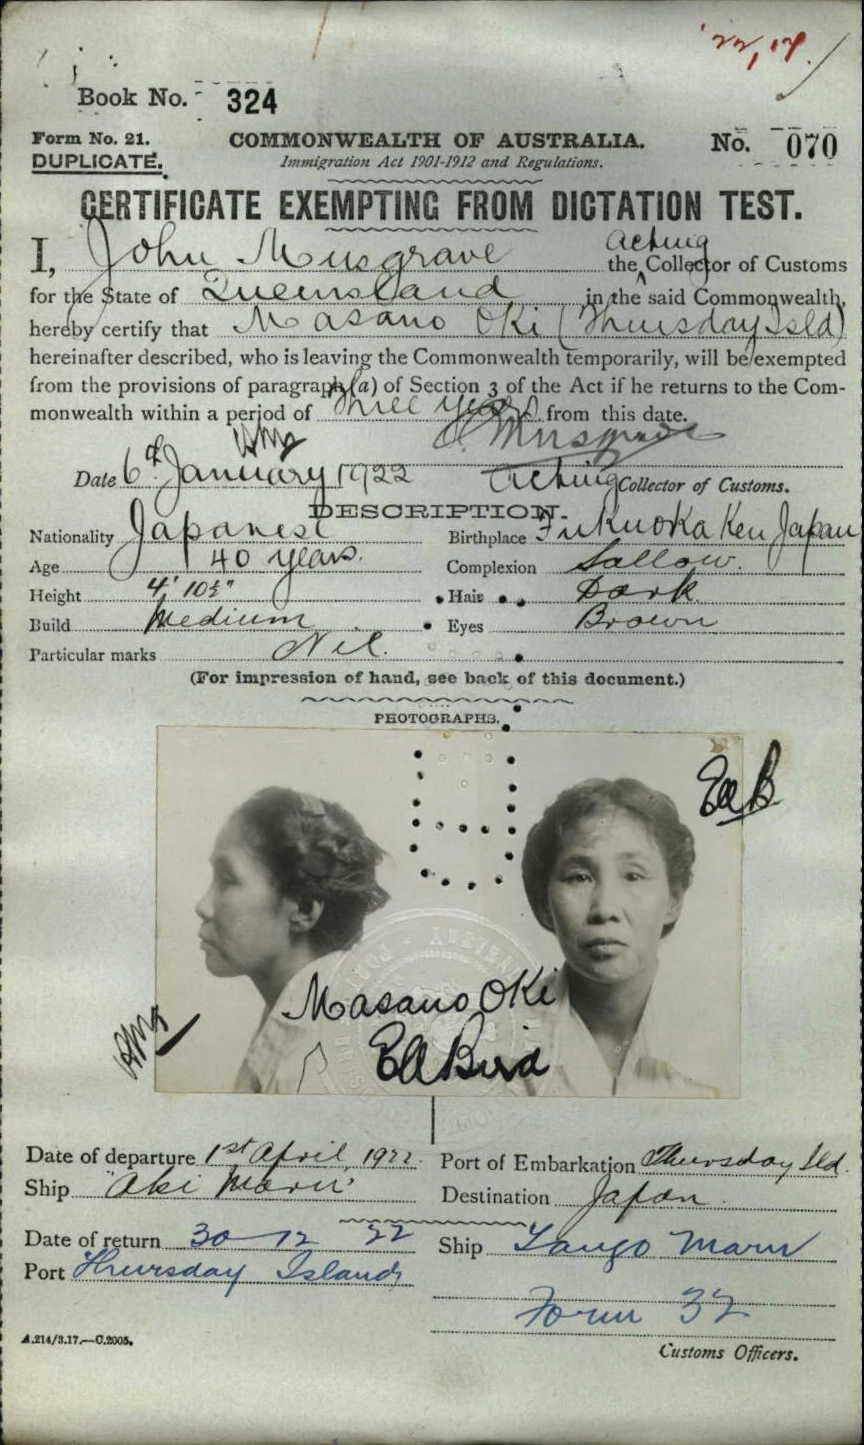 22/17.
Book No. 324
Form No. 21. COMMONWEALTH OF AUSTRALIA. No. 070
DUPLICATE. Immigration Act 1901-1912 and Regulations.
CERTIFICATE EXEMPTING FROM DICTATION TEST.
I, John Musgrave the Acting Collector of Customs
for the State of Queensland in the said Commonwealth,
hereby certify that Masano Oki (Thursday Isld)
hereinafter described, who is leaving the Commonwealth temporarily, will be exempted
from the provisions of paragraph (a) of Section 3 of the Act if he returns to the Com-
monwealth within a period of three years from this date.
J. Musgrave
Date 6th January 1922 Acting Collector of Customs.
DESCRIPTION.
Nationality Japanese Birthplace Fukuoka Ken Japan
Age 40 years. Complexion Sallow.
Height 4' 10½" Hair Dark
Build Medium Eyes Brown
Particular marks Nil.
(For impression of hand, see back of this document.)
PHOTOGRAPHS.
EAB
Masano Oki
EA Bird
Date of departure 1st April 1922. Port of Embarkation Thursday Isld.
Ship "Aki Maru" Destination Japan.
Date of return 30 12 22 Ship Tango Maru
Port Thursday Island
Form 32
A.214/3.17.—C.2005.
Customs Officers.